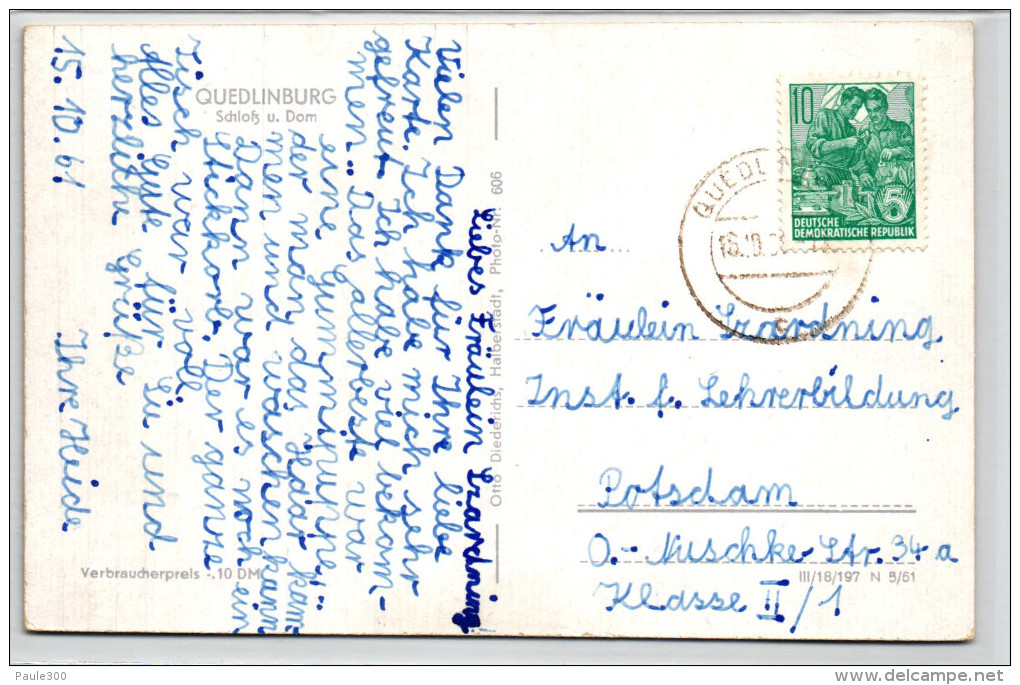 QUEDLINBURG
Schloß u. Dom
Liebes Fräulein Szardning!
Vielen Dank für Ihre liebe
Karte. Ich habe mich sehr
gefreut. Ich habe viel bekom-
men. Das allerbeste war
eine Gummipuppe,
der man das Haar käm-
men und waschen kann.
Dann war es noch ein
Stickkorb. Der ganze
Tisch war voll.
Alles Gute für Sie und
herzliche Grüße
Ihre Heide
15.10.61
Verbraucherpreis -.10 DM
Otto Diederichs, Halberstadt, Photo-Nr. 606
10
5
DEUTSCHE
DEMOKRATISCHE REPUBLIK
QUEDL
16.10.
c
An
Fräulein Szardning
Inst. f. Lehrerbildung
Potsdam
O.-Nuschke-Str. 34a
Klasse II/1
III/18/197 N 5/61
Paule300
delcampe.net